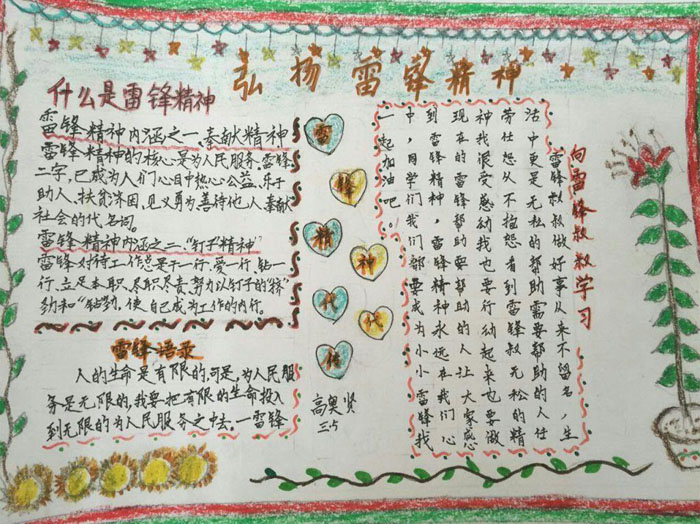 弘扬雷锋精神
什么是雷锋精神
雷锋精神内涵之一、奉献精神
雷锋精神的核心是为人民服务.雷锋
二字,已成为人们心目中热心公益、乐于
助人、扶贫济困、见义勇为、善待他人、奉献
社会的代名词。
雷锋精神内涵之二、"钉子精神"
雷锋对待工作总是干一行、爱一行、钻一
行,立足本职、尽职尽责、努力以钉子的"挤"
劲和"钻"劲,使自己成为工作的内行。
雷锋语录
人的生命是有限的,可是,为人民服
务是无限的,我要把有限的生命投入
到无限的为人民服务之中去.一雷锋
雷
锋
精
神
代
代
传
高奥贤
三5
向雷锋叔叔学习
雷锋叔叔做好事从来不留名,生
活中更是无私的帮助需要帮助的人任
劳任怨从不抱怨看到雷锋叔无私的精
神我很受感动我也要行动起来也要做
现在的雷锋帮助要帮助的人让大家感
到雷锋精神,雷锋精神永远在我们心
中,同学们我们都要成为小小雷锋我
一起加油吧。